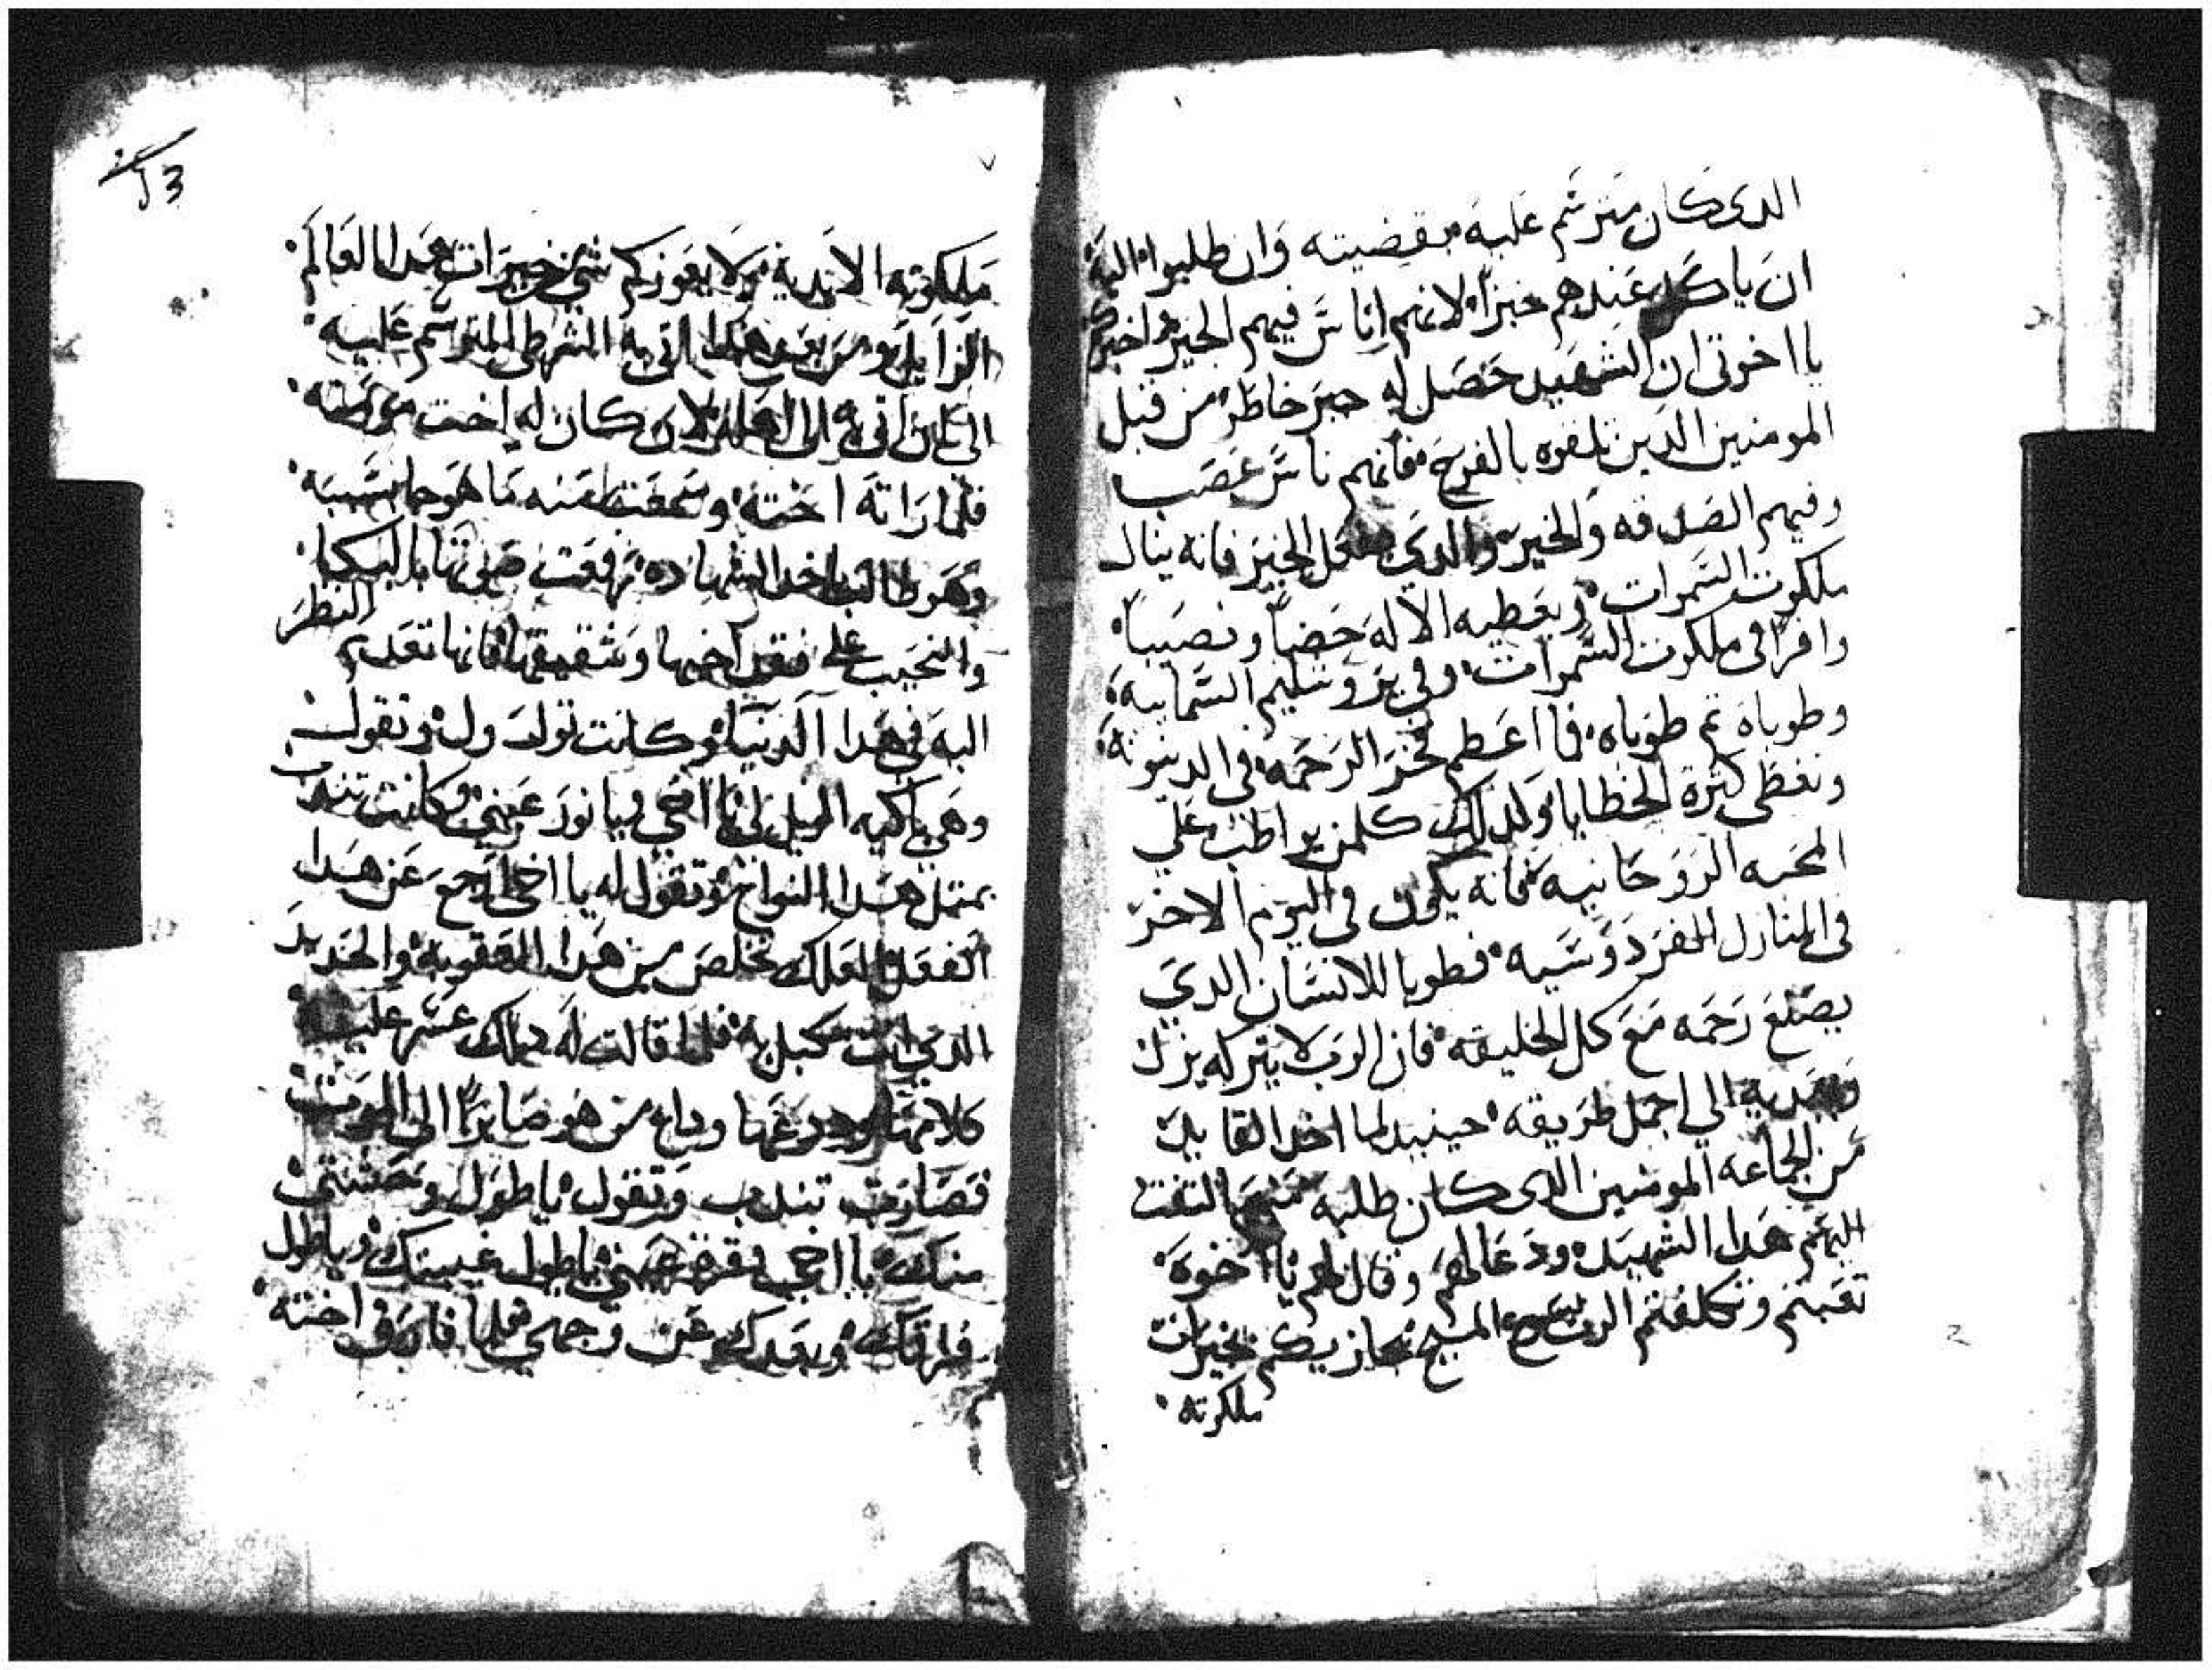 الدى كان مترسم عليه بقضيته وان طلبوا اليه
ان ياكل عندهم خبزاً لانهم اناس فيهم الخير واخبركم
يا اخوتى ان الشهيد حصل له جبر خاطر من قبل
المومنين الدين تلقوه بالفرح فانهم ناس غصب
وفيهم الصدقه والخير والدي يفعل الخير فانه ينال
ملكوت السموات ويعطيه الاله حضاً ونصيباً
وافرا فى ملكوت السموات وفي يروشليم السماييه
وطوباه تم طوباه فما اعظم فخر الرحمه فى الدينونه
وتغطى كثرة الخطايا ولدلك كلمن يواظب علي
المحبه الروحانيه فانه يكون في اليوم الاخر
فى المنازل الفردوسيه فطوبا للانسان الدي
يصنع رحمه مع كل الخليقه فان الرب لا يتركه يزل
ويهديه الي اجمل طريقه حينيد لما اخد القابل
من الجماعه المومنين الدى كان طلبه منهم التفت
اليهم هدا الشهيد ودعا لهم وقال لهم يا اخوه
تعبتم وتكلفتم الرب يسوع المسيح يجازيكم بخيرات
ملكوته
13
ملكوته الابدية ولا يعوزكم شي من خيرات هدا العالم
الزايل ومن بعد هدا اتى به الشرطى المترسم عليه
الي ان اتى به الى لان كان له اخت
فلما راته اخته وسمعت منه ما هو جا بسببه
وهو طالب اخد الشهاده رفعت صوتها بالبكا
والنحيب على فقد اخيها وشقيقها فانها تعدم النظر
اليه في هدا الدنيا وكانت تولول وتقول
وهي باكيه الويل لي يا اخي ويا نور عيني وكانت تندب
بمتل هدا النواح وتقول له يا اخى ارجع عن هدا
الفعل لعلك تخلص من هدا العقوبه والحديد
الدي انت مكبل به فلما قالت له دلك عسر عليه
كلامها وودعها وداع من هو صايراً الى الموت
فصارت تندب وتقول يا طول وحشتي
منك يا اخي يا قرة عيني يا طول غيبتك ويا طول
فراقك وبعدك عن وجهي فلما فارق اخته